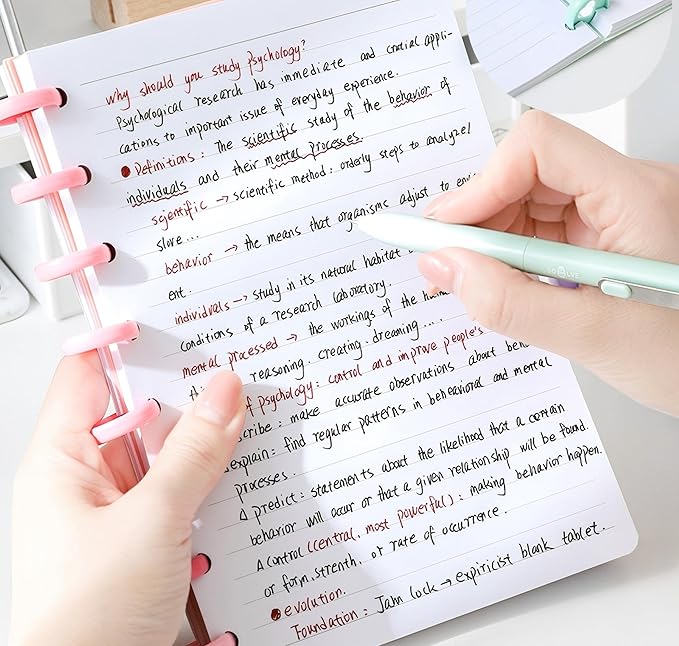 why should you study psychology?
Psychological research has immediate and crutial appli-
cations to important issue of everyday experience.
● Definitions : The scientific study of the behavior of
individuals and their mental processes.
scientific → scientific method : orderly steps to analyze/
slove ...
behavior → the means that organisms adjust to
ent.
individuals → study in its natural habitat
conditions of a research laboratory.
mental processed → the workings of the
reasoning. creating. dreaming ...
of psychology : control and improve people's
scribe : make accurate observations about
explain : find regular patterns in behevioral and mental
processes.
Δ predict : statements about the likelihood that a certain
behavior will occur or that a given relationship will be found.
Δ control (central, most powerful) : making behavior happen.
or form, strenth, or rate of occurrence.
● evolution.
Foundation : Jahn Lock → expiricist blank tablet.